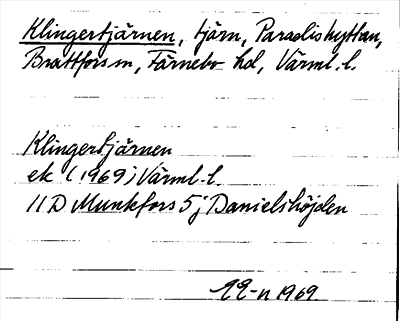 Klingertjärnen, tjärn, Paradishyttan,
Brattfors sn, Färnebo hd, Värml. l.
Klingertjärnen
ek (1969) Värml. l.
11D Munkfors 5j Danielshöjden
1969